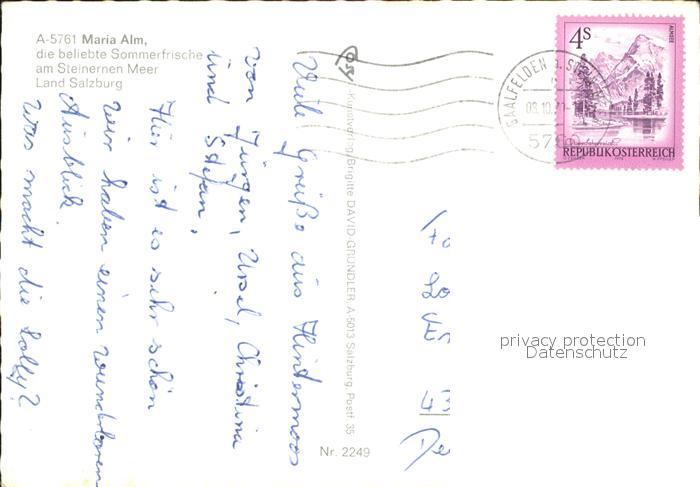 A-5761 Maria Alm,
die beliebte Sommerfrische
am Steinernen Meer
Land Salzburg
Viele Grüße aus Hintermoos
von Jürgen, Ursel, Christina
und Stefan.
Hier ist es sehr schön
wir haben einen wunderbaren
Ausblick.
Was macht die Lolly?
Kunstverlag Brigitte DAVID-GRÜNDLER A-5013 Salzburg, Postf. 35
Nr. 2249
SAALFELDEN
4S
ALMSEE
REPUBLIK ÖSTERREICH
privacy protection
Datenschutz